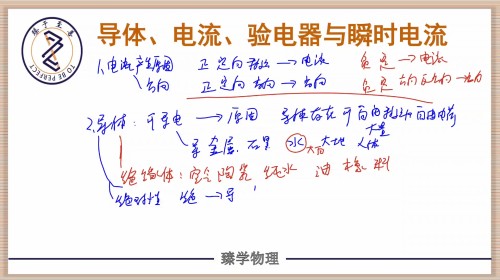 臻于至善
TO BE PERFECT
导体、电流、验电器与瞬时电流
1.电流产生原因 正定向移动→电流 负定→电流
方向 正定向方向→方向 负定
2.导体:可导电→原因 导体存在可自由移动自由电荷
大量
导金属.石墨 水 大地 人体
绝缘体:空气 陶瓷 纯水 油 橡 料
绝对性 绝→导
臻学物理